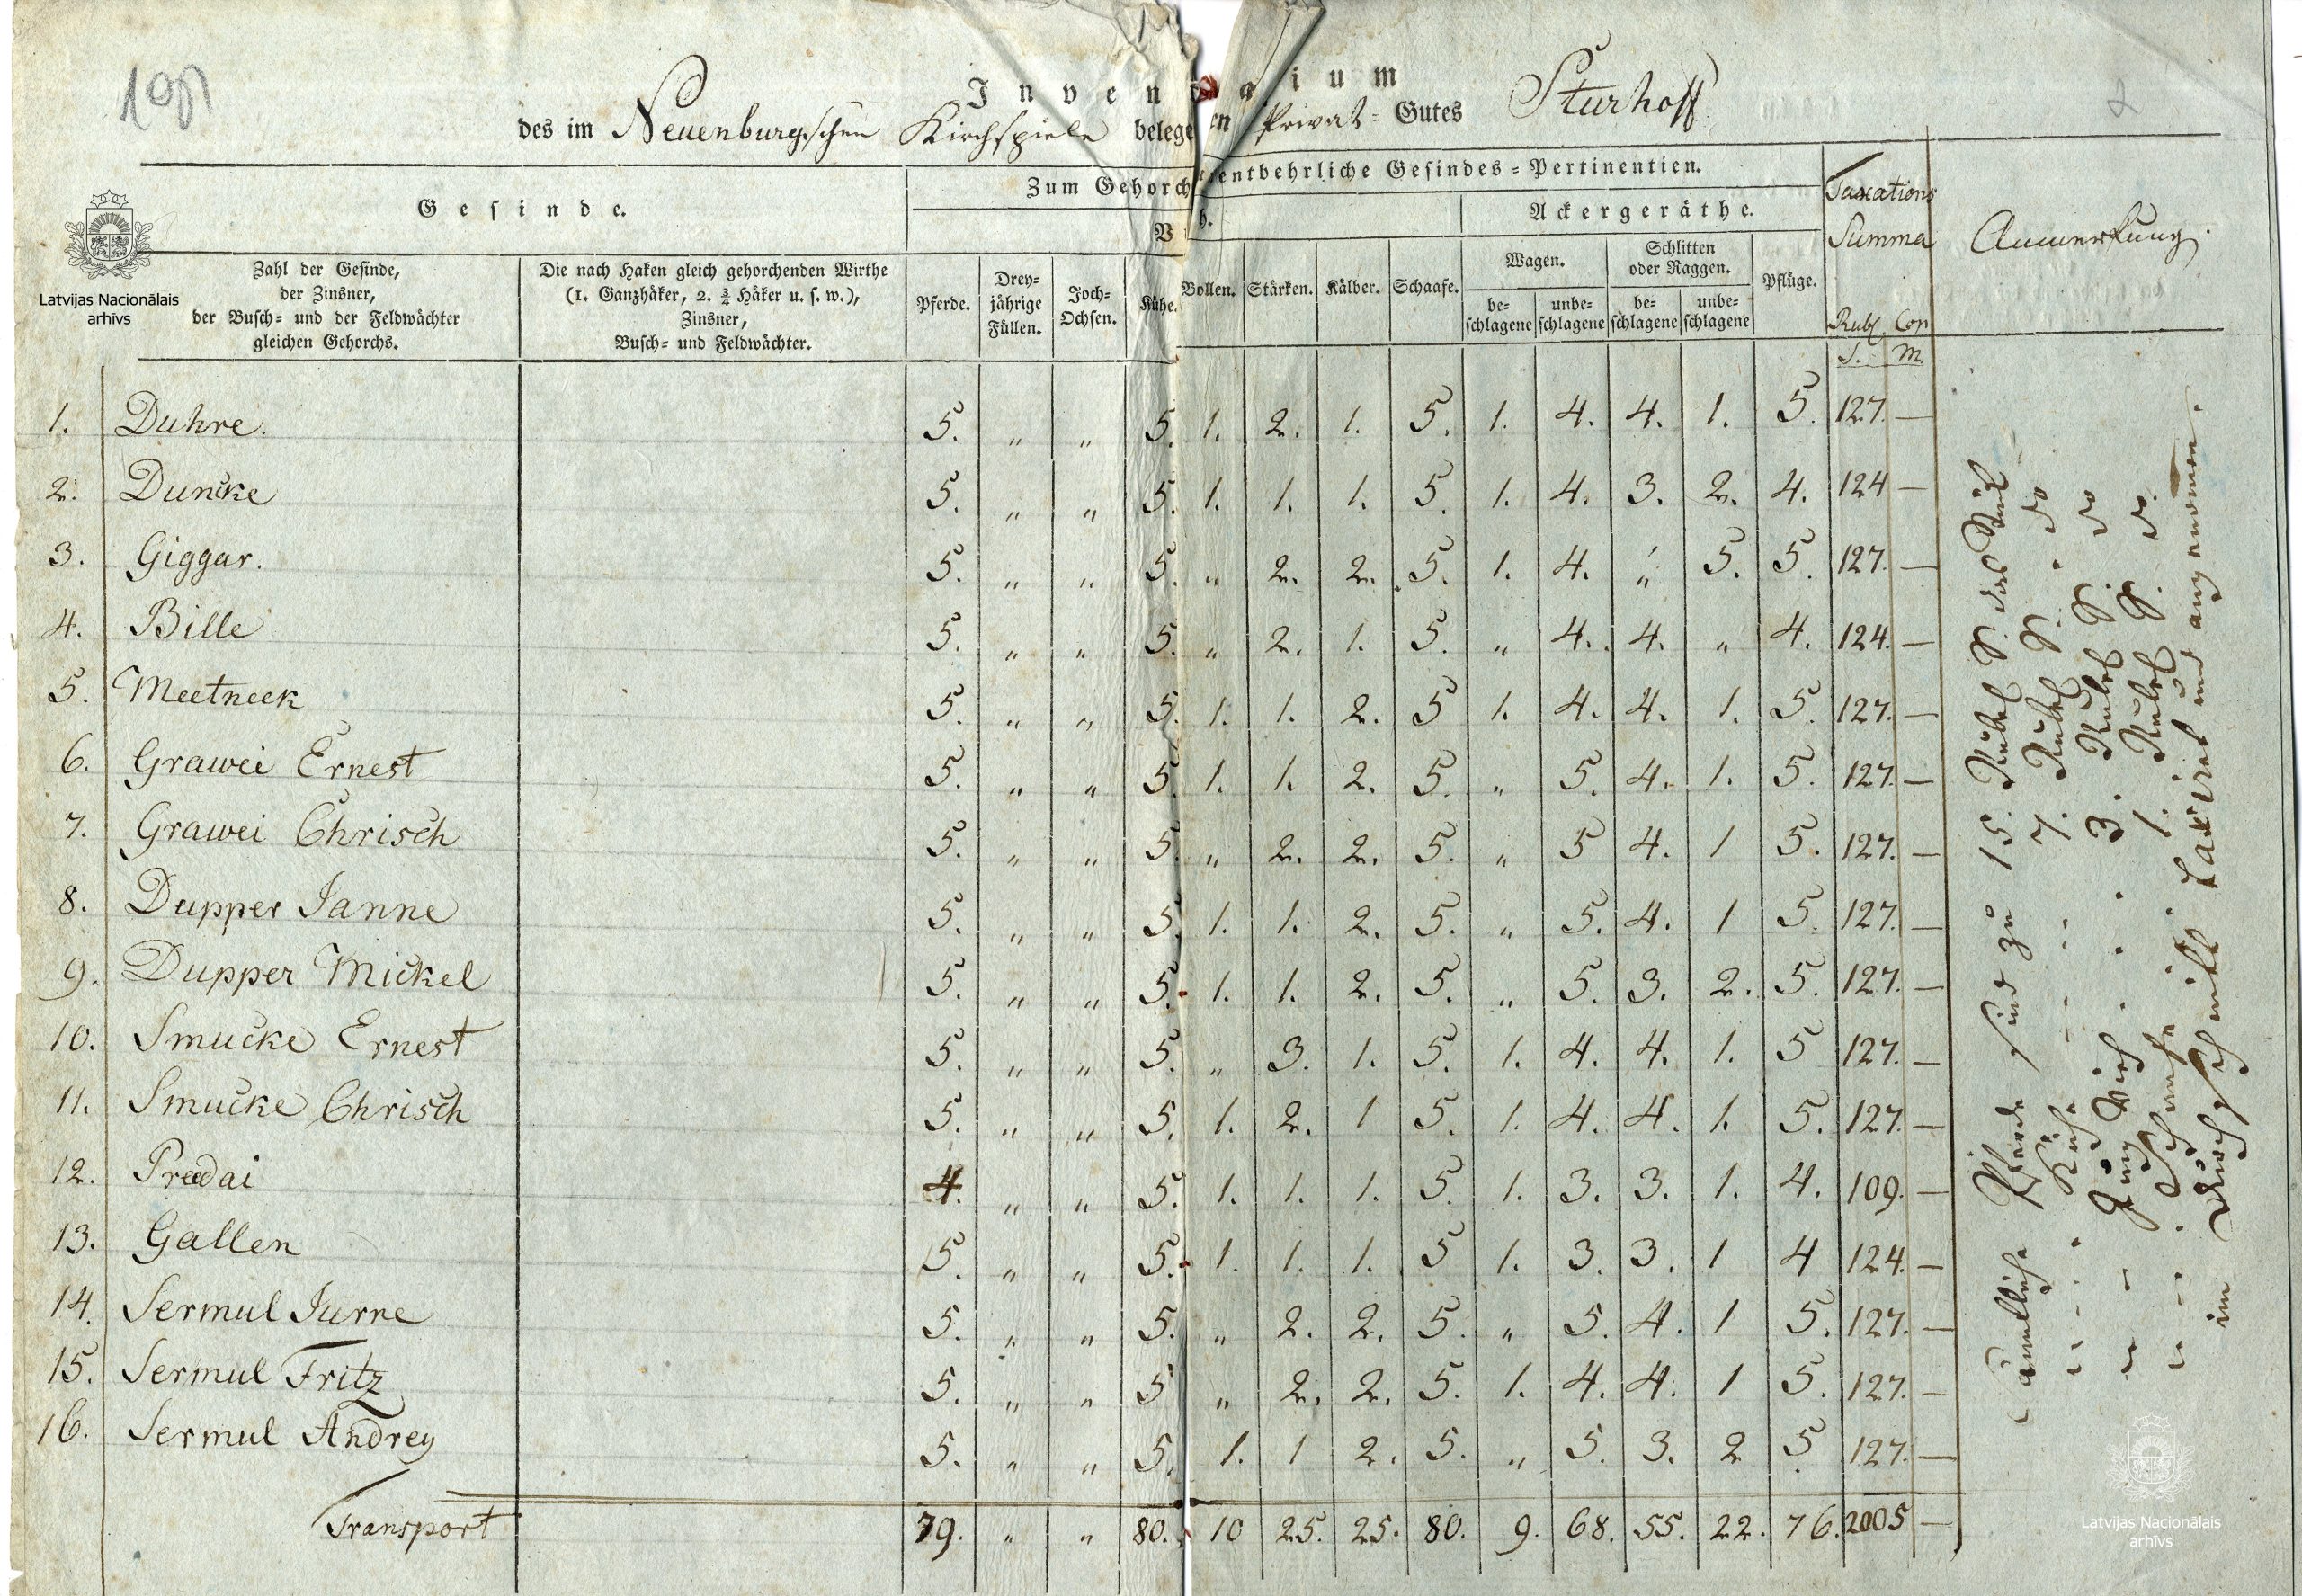 108
Inventarium
des im Neuenburgschen Kirchspiele belegenen Privat-Gutes Sturhoff
Gesinde.
Zum Gehorch unentbehrliche Gesindes-Pertinentien.
Taxations
Summa
Anmerkung.
V h.
Ackergeräthe.
Zahl der Gesinde,
der Zinsner,
der Busch- und der Feldwächter
gleichen Gehorchs.
Die nach Haken gleich gehorchenden Wirthe
(1. Ganzhäker, 2. ¾ Häker u. s. w.),
Zinsner,
Busch- und Feldwächter.
Pferde.
Drey-
jährige
Füllen.
Joch-
Ochsen.
Kühe.
Bollen.
Stärken.
Kälber.
Schaafe.
Wagen.
be-
schlagene
unbe-
schlagene
Schlitten
oder Raggen.
be-
schlagene
unbe-
schlagene
Pflüge.
Rubl Cop
S. M.
1. Duhre. 5. " " 5. 1. 2. 1. 5. 1. 4. 4. 1. 5. 127. —
2. Duncke 5. " " 5. 1. 1. 1. 5. 1. 4. 3. 2. 4. 124 —
3. Giggar. 5. " " 5. " 2. 2. 5. 1. 4. " 5. 5. 127. —
4. Bille 5. " " 5. " 2. 1. 5. " 4. 4. " 4. 124. —
5. Meetneek 5. " " 5. 1. 1. 2. 5 1. 4. 4. 1. 5. 127. —
6. Grawei Ernest 5. " " 5 1. 1. 2. 5. " 5. 4. 1. 5. 127. —
7. Grawei Chrisch 5. " " 5 " 2. 2. 5. " 5 4. 1 5. 127. —
8. Dupper Janne 5. " " 5 1. 1. 2. 5. " 5. 4. 1 5. 127. —
9. Dupper Mickel 5. " " 5. 1. 1. 2. 5. " 5. 3. 2. 5. 127. —
10. Smucke Ernest 5. " " 5. " 3. 1. 5. 1. 4. 4. 1. 5 127. —
11. Smucke Chrisch 5. " " 5. 1. 2. 1 5. 1. 4. 4. 1. 5. 127. —
12. Preedai 4. " " 5. 1. 1. 1. 5. 1. 3. 3. 1. 4. 109. —
13. Gallen 5. " " 5. 1. 1. 1. 5 1. 3. 3. 1 4 124. —
14. Sermul Jurre 5. " " 5. " 2. 2. 5. " 5. 4. 1 5. 127. —
15. Sermul Fritz 5. " " 5 " 2. 2. 5. 1. 4. 4. 1 5. 127. —
16. Sermul Andrey 5. " " 5. 1. 1 2. 5. " 5. 3. 2 5 127. —
Transport 79. " " 80. 10 25. 25. 80. 9. 68. 55. 22. 76. 2005 —
Sämtliche Pferde sind zu 15. Rubel S. das Stück
" Kühe 7. Rubel S. do
" Jung Vieh 3. Rubel S. do
" Schaafe 1. Rubel S. do.
im Durchschnitt taxiret und angenomen.
Latvijas Nacionālais
arhīvs
Latvijas Nacionālais
arhīvs